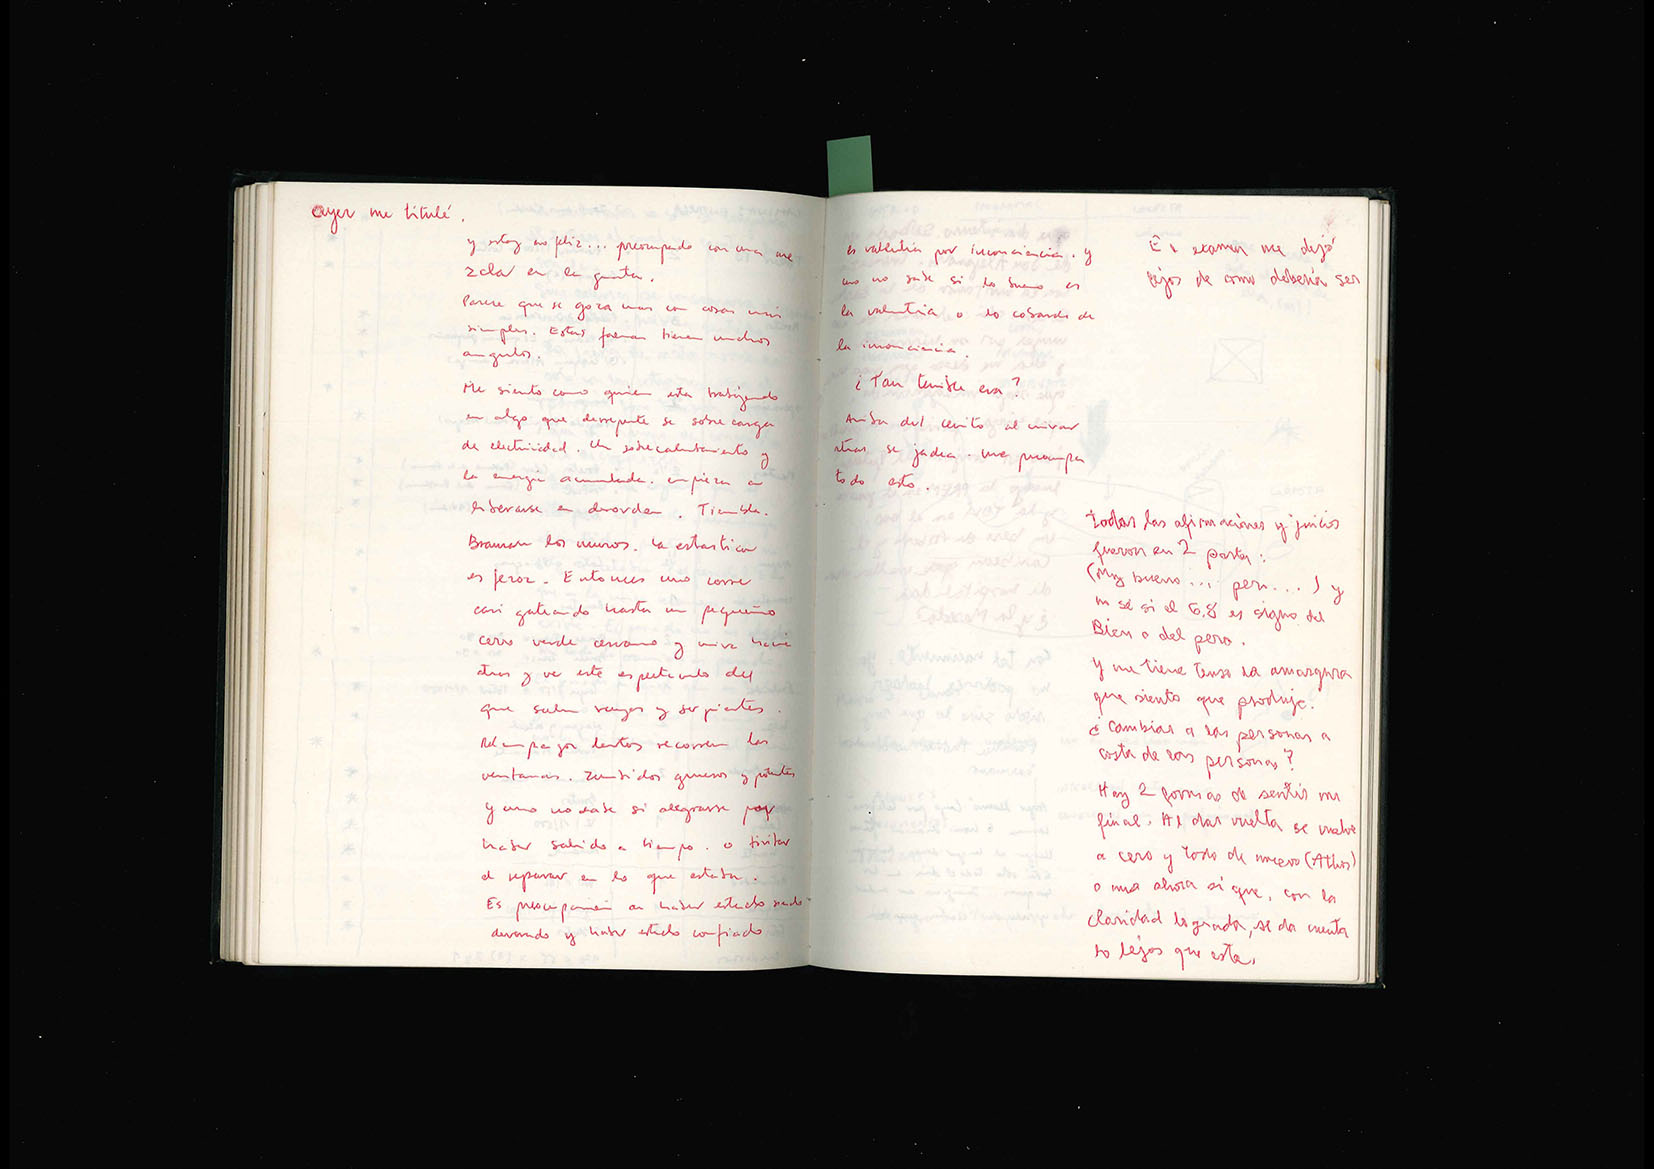 ayer me titulé.
y estoy no feliz... preocupado con una me
zcla en la garita.
Parece que se goza mas con cosas mas
simples. Estas faenas tienen muchos
angulos.
Me siento como quien esta trabajando
en algo que derrepente se sobrecarga
de electricidad. Un sobrecalentamiento y
la energia acumulada. empieza a
liberarse en desorden. Tiembla.
Braman los muros. La estastica
es feroz. Entonces uno corre
casi gateando hasta un pequeño
cerro verde cercano y mira hacia
atras y ve este espectaculo del
que salen rayos y serpientes.
Relampagos lentos recorren las
ventanas. Zumbidos gruesos y potentes
y uno no sabe si alegrarse por
haber salido a tiempo. o tiritar
al reparar en lo que estaba.
Es preocupacion de haber estado siendo
devorado y haber estado confiado
es valentia por inconciencia. y
uno no sabe si lo bueno es
la valentia o lo cobarde de
la inconciencia.
¿Tan terrible era?
Arriba del cerrito al mirar
atras se jadea. me preocupa
todo esto.
El examen me dejó
lejos de como debería ser
todas las afirmaciones y juicios
fueron en 2 partes:
(Muy bueno... pero...) y
no sé si el 6,8 es signo del
Bien o del pero.
Y me tiene tenso la amargura
que siento que produje.
¿Cambiar a las personas a
costa de las personas?
Hay 2 formas de sentir un
final. Al dar vuelta se vuelve
a cero y todo de nuevo (Athos)
o una ahora si que, con la
claridad lograda, se da cuenta
lo lejos que esta.